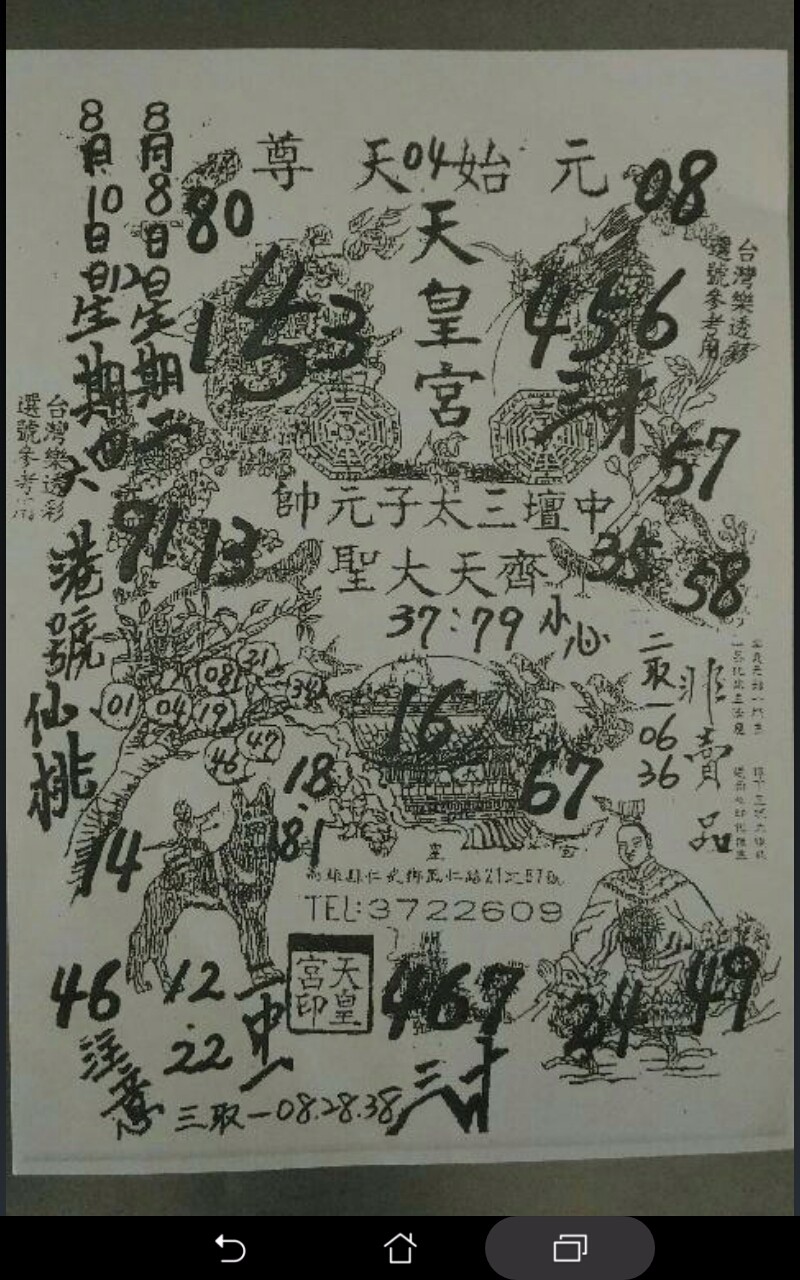 8月8日星期二
8月10日星期四
12日
六
元始天尊
04
08
80
天皇宮
153
456
三才
台灣樂透彩
選號參考用
台灣樂透彩
選號參考
57
中壇三太子元帥
91 13
齊天大聖
35
58
37:79 小心
港號
仙桃
08 31
01 04 19
34
46 47
16
18
81
67
二取一
06
36
非賣品
14
高雄縣仁武鄉鳳仁路21之67號
TEL:3722609
天皇宮印
46
12
22
二中一
467
三才
24
49
注意
三取一08.28.38